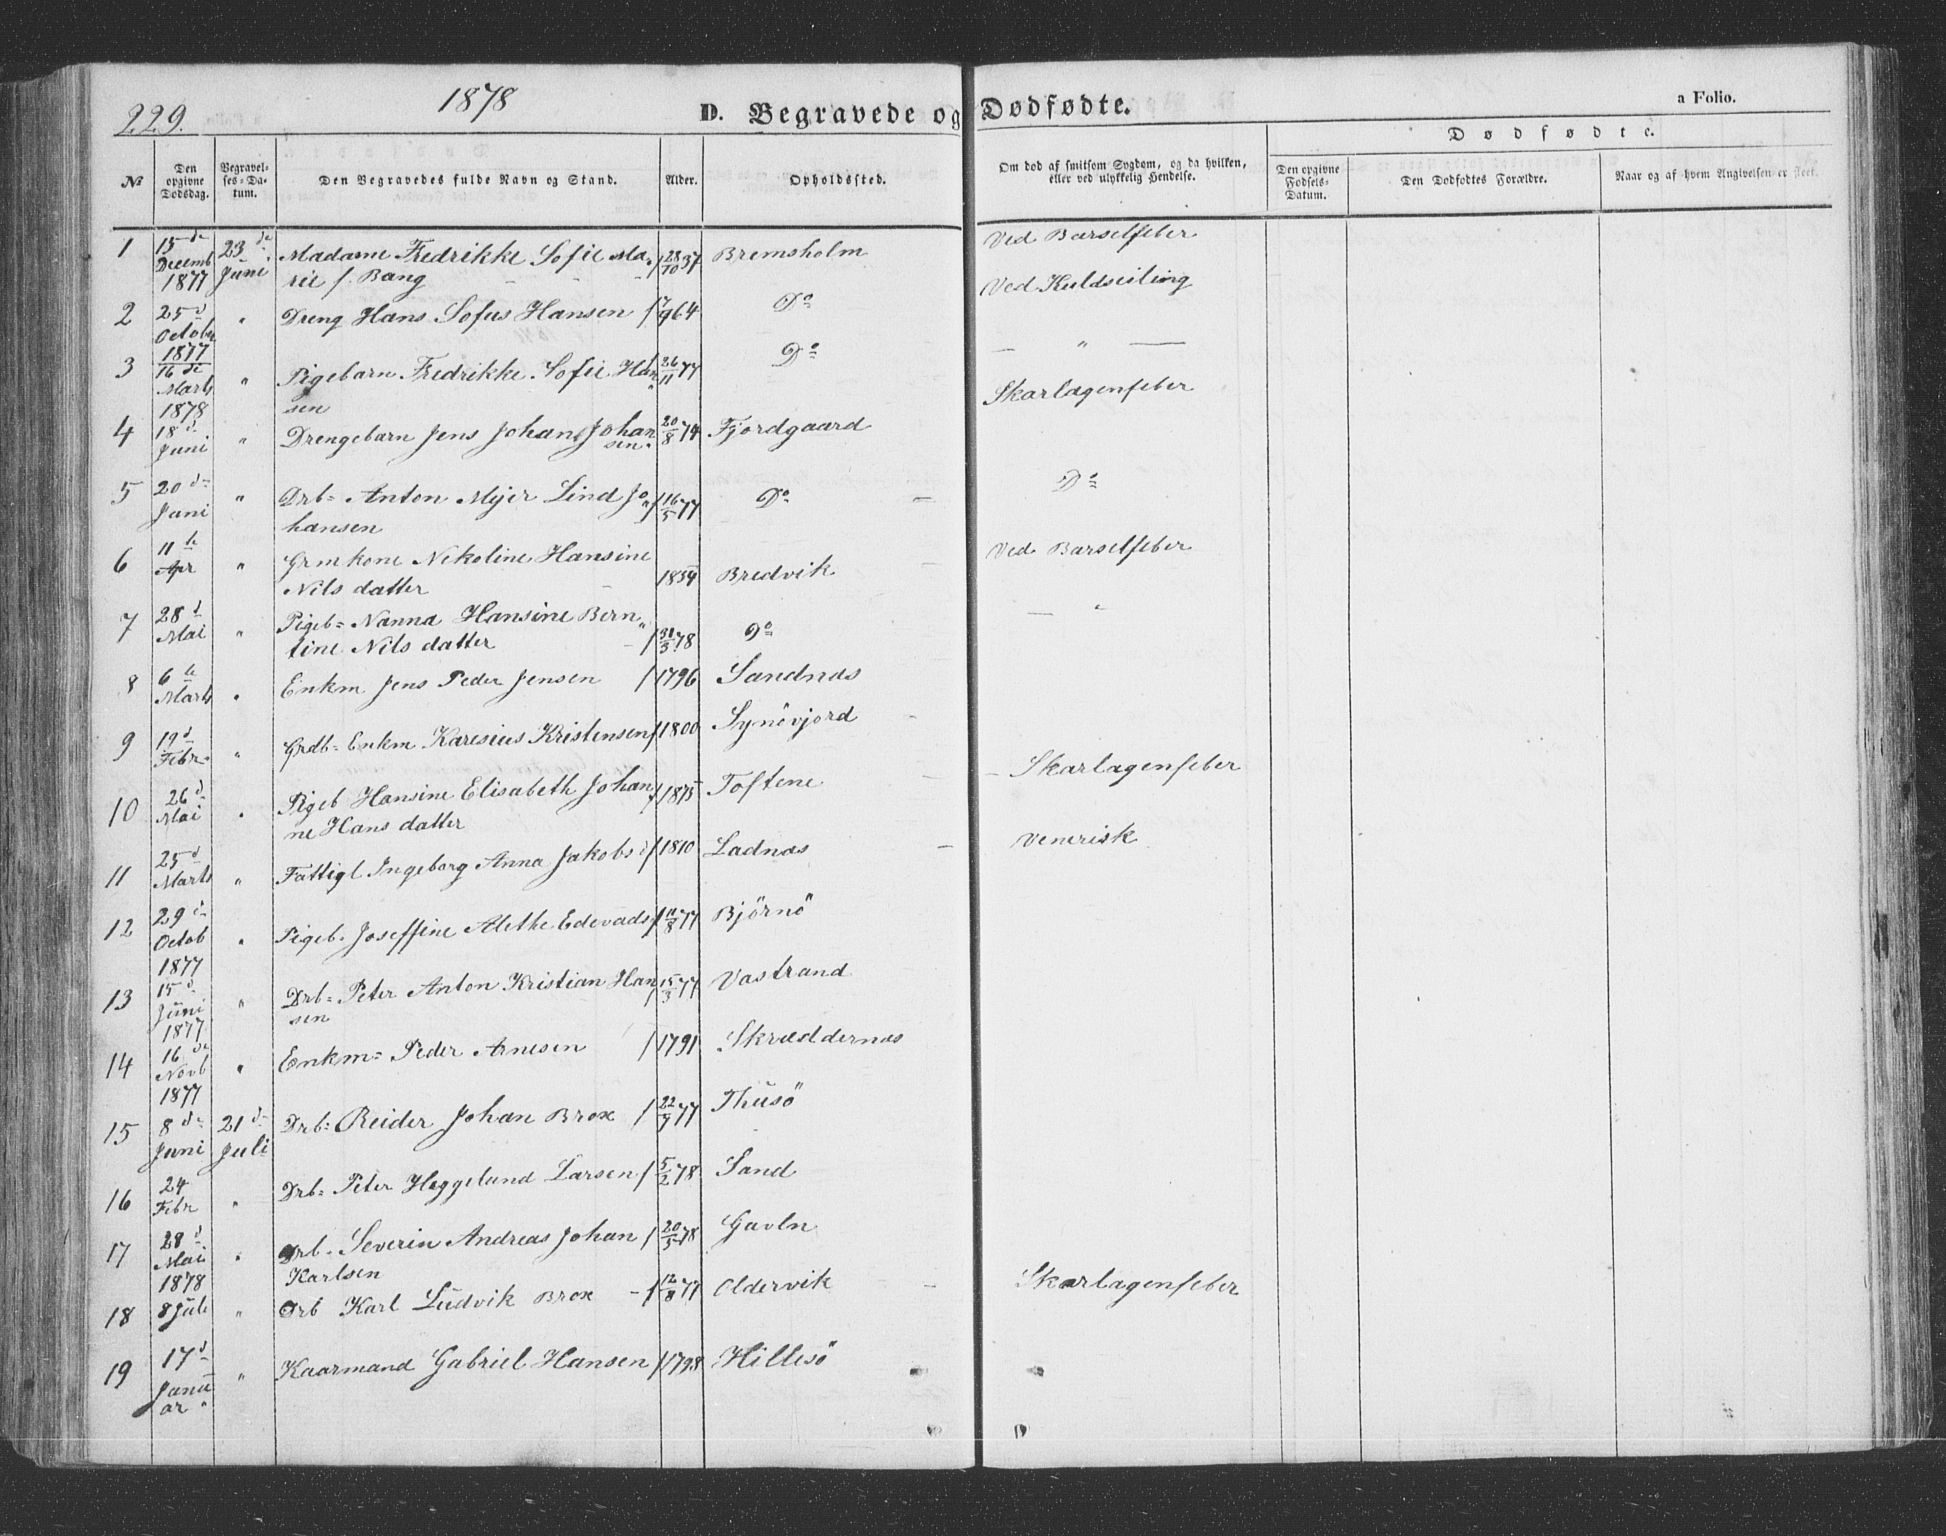 229.
1878
D. Begravede og Dødfødte.
a Folio.
№
Den opgivne Dødsdag.
Begravelses-Datum.
Den Begravedes fulde Navn og Stand.
Alder.
Opholdssted.
Om død af smitsom Sygdom, og da hvilken, eller ved ulykkelig Hendelse.
Dødfødte.
Den opgivne Fødsels-Datum.
Den Dødfødtes Forældre.
Naar og af hvem Angivelsen er skeet.
1 15de Decemb 1877 23de Juni Madame Fredrikke Sofie Marie f. Bang f 28/10 37 Bremsholm Ved Barselfeber
2 25d October 1877 " Dreng Hans Sofus Hansen f 7/9 64 Do Ved Kuldseiling
3 16de Marts 1878 " Pigebarn Fredrikke Sofie Hansen f 26/11 77 Do — " —
4 18d Juni " Drengebarn Jens Johan Johansen 20/8 74 Fjordgaard Skarlagenfeber
5 20d Juni " Drb= Anton Mejer Lind Johansen f 16/5 77 Do Do
6 11te Apr " Grmkone Nikoline Hansine Nils datter 1854 Bredvik Ved Barselfeber
7 28d Mai " Pigeb= Nanna Hansine Berntine Nils datter f 31/3 78 Do — "
8 6te Marts " Enkm Jens Peder Jensen f 1796 Sandnæs
9 19d Febr " Grdb= Enkm Karesius Kristensen f 1800 Synövjord
10 26d Mai " Pigeb Hansine Elisabeth Johanne Hans datter f 1875 Toftene Skarlagenfeber
11 25d Marts " Fattigl Ingeborg Anna Jakobs d f 1810 Ladnæs Venerisk
12 29d Octob 1877 " Pigeb. Joseffine Alethe Edevads f 11/8 77 Björnö
13 15d Juni 1877 " Drb= Peter Anton Kristian Hansen f 15/3 77 Vastrand
14 16de Novb 1877 " Enkm= Peder Arnesen f 1791 Skræddernæs
15 8de Juni 21d Juli Drb= Reider Johan Brox f 22/9 77 Thusö
16 24 Febr " Drb= Peter Heggelund Larsen f 5/2 78 Sand
17 28d Mai 1878 " Drb. Severin Andreas Johan Karlsen f 20/5 78 Gavln
18 8 Juli " Drb Karl Ludvik Brox f 12/8 77 Oldervik Skarlagenfeber
19 17d Januar " Kaarmand Gabriel Hansen f 1798 Hillesö